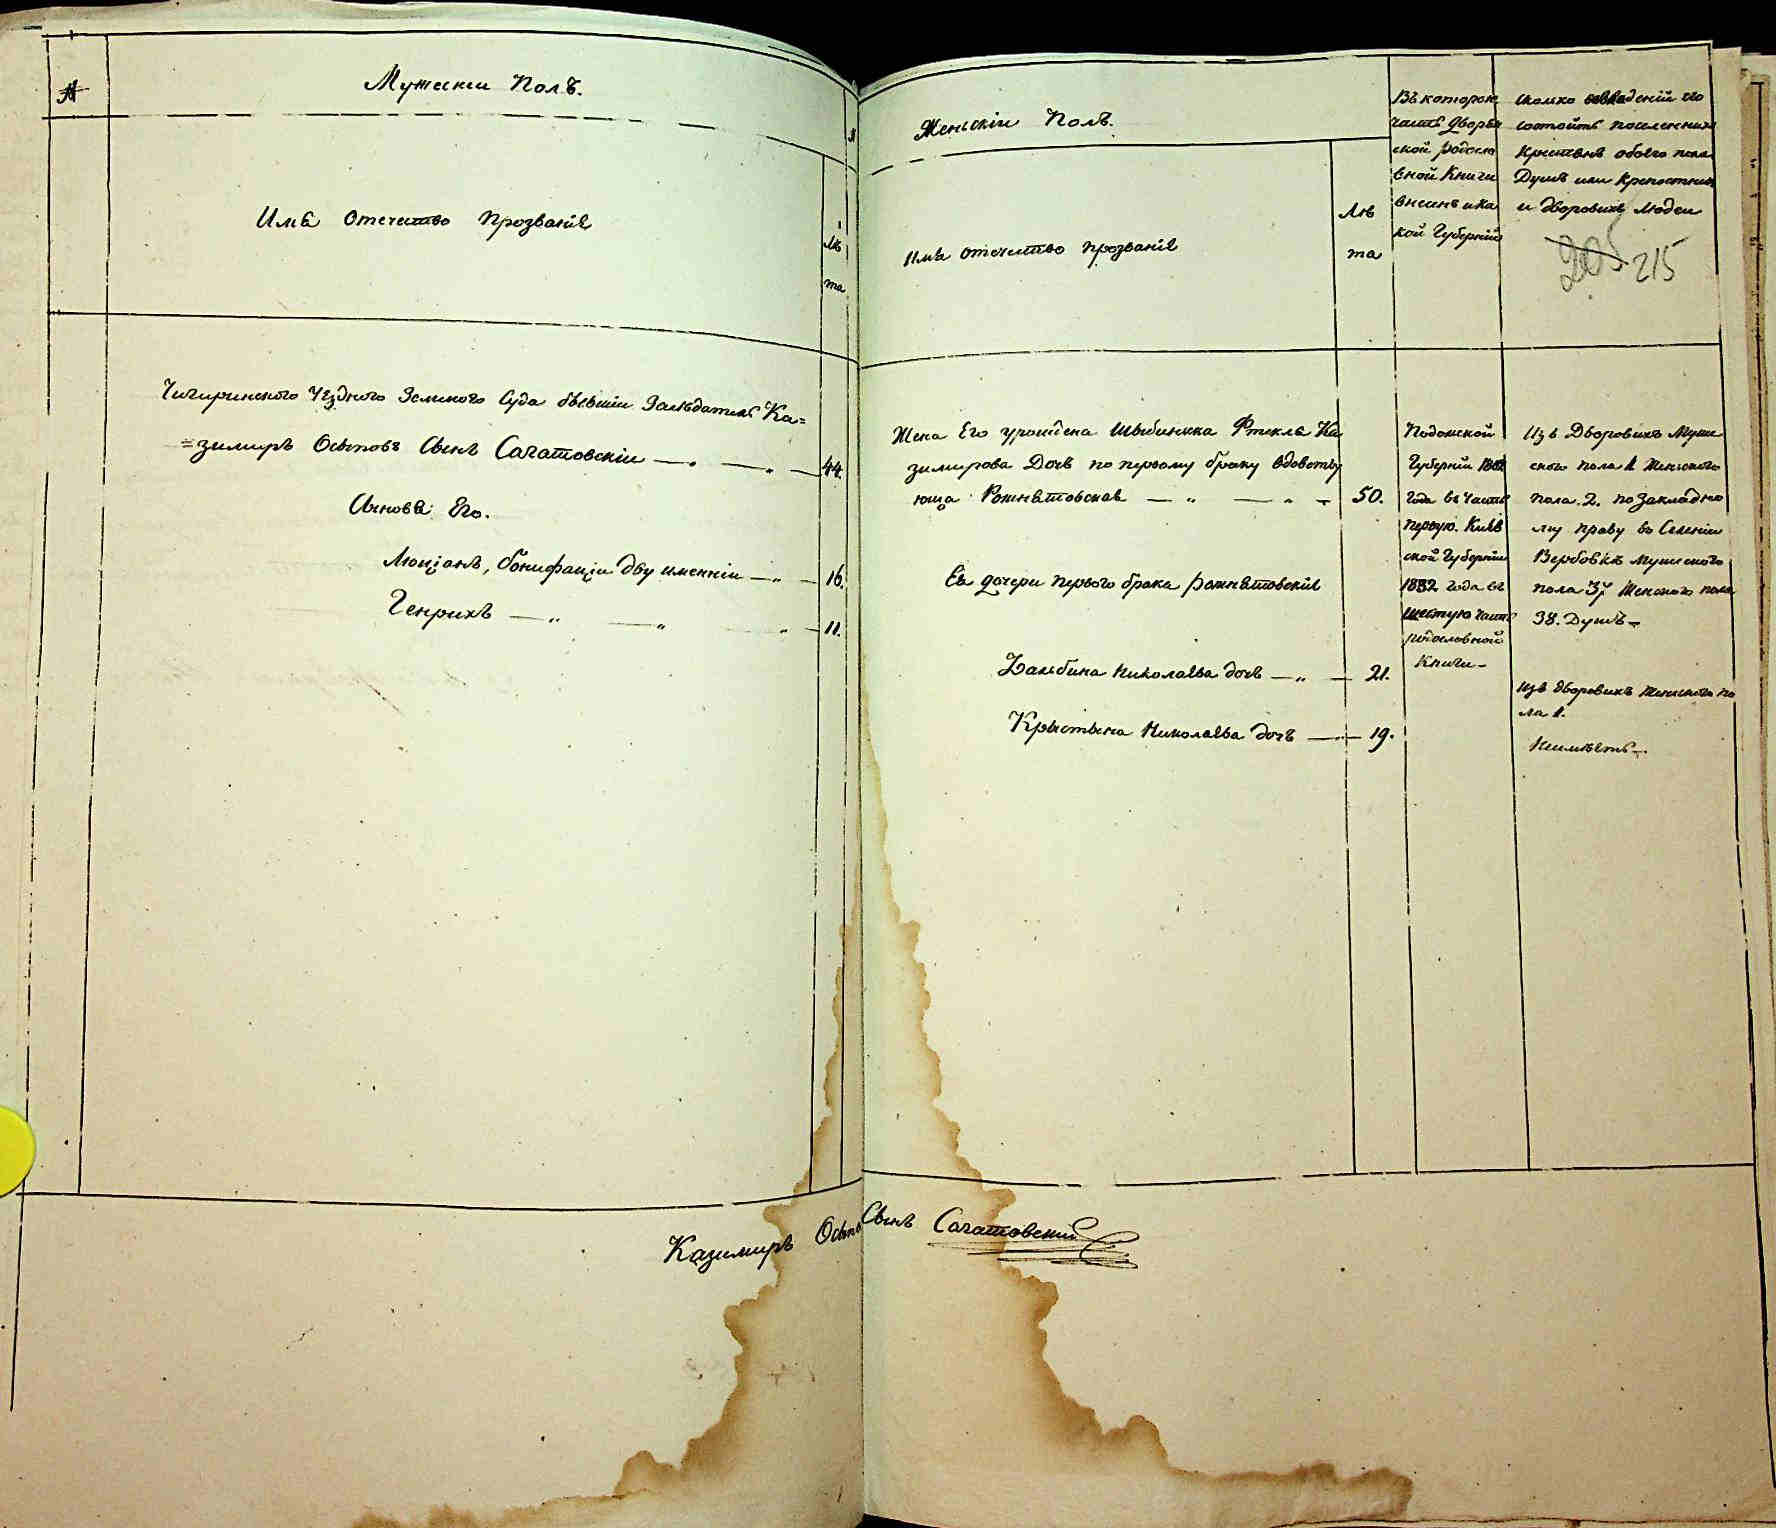 №
Мужескіи Полъ.
Имѣ Отечество Прозваніѣ
Лѣ
та
Чигиринского Уѣздного Земского Суда бывшіи Засѣдатель Ка=
=зимиръ Осыповъ Сынъ Сагатовскіи — „ — „ — 44.
Сыновѣ Его.
Люціанъ, Бонифаціи двуименніи — „ — 16.
Генрихъ — „ — „ — „ — 11.
Женьскіи Полъ.
Имѣ отечество прозваніѣ
Лѣ
та
Жена Его урожденa Ка
зимирова Дочь по первому браку вдовству
юща Рожнѣтовская — „ — „ — 50.
Еѣ дочери первого брака рожнѣтовскіѣ
Бальбина Николаева дочь — „ — 21.
Крыстына Николаева дочь — — 19.
Въ которои
часть Дворѣн
ской родосло
вной Книги
внесенъ и ка
кой Губерніи
Подолской
Губерніи
года въ часть
первую. Кіев
ской Губерніи
1832 года въ
шестую часть
родословной
Книги —
сколко во владеніи его
состоитъ поселенних
Крестьянъ обоего пола
Душъ или Крепостних
и дворовихъ людеи
205 215
Изъ Дворовихъ Муже
ского пола 1 Женского
пола 2. по закладно
му праву въ Селеніи
Вербовкѣ Мужеского
пола 37 Женского пола
38. Душъ —
Изъ дворовихъ Женского по
ла 1.
Неимѣетъ —
Казимиръ Осыповъ Сынъ Сагатовскіи